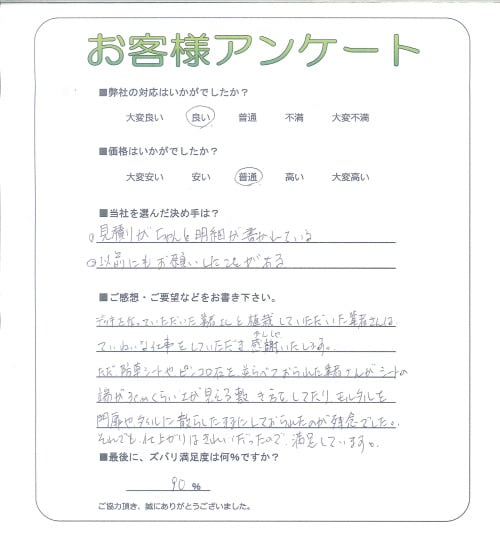 お客様アンケート
■弊社の対応はいかがでしたか？
大変良い 良い 普通 不満 大変不満
■価格はいかがでしたか？
大変安い 安い 普通 高い 大変高い
■当社を選んだ決め手は？
①見積りがちゃんと明細が書かれている
②以前にもお願いしたことがある
■ご感想・ご要望などをお書き下さい。
デッキを作っていただいた業者さんと植栽していただいた業者さんは
ていねいな仕事をしていただき感謝いたします。
ただ防草シートやピンコロ石を並らべておられた業者さんがシートの
端が3cmくらい土が見える敷き方をしてたり、モルタルを
門扉やタイルに散らしたままにしておられたのが残念でした。
それでも仕上がりはきれいだったので、満足しています。
■最後に、ズバリ満足度は何%ですか？
90 %
ご協力頂き、誠にありがとうございました。